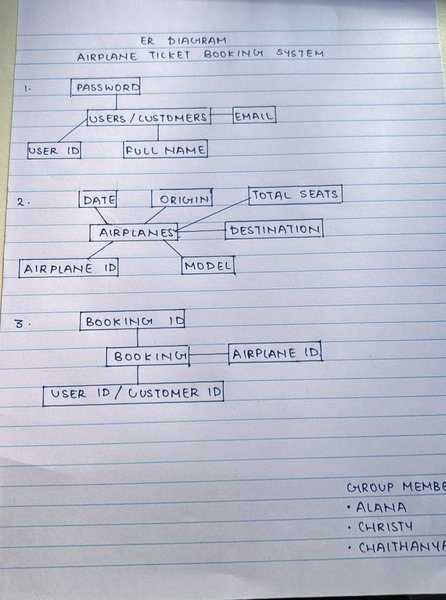 ER DIAGRAM
AIRPLANE TICKET BOOKING SYSTEM
1.
PASSWORD
USERS / CUSTOMERS EMAIL
USER ID FULL NAME
2. DATE ORIGIN TOTAL SEATS
AIRPLANES DESTINATION
AIRPLANE ID MODEL
3. BOOKING ID
BOOKING AIRPLANE ID
USER ID / CUSTOMER ID
GROUP MEMBE
• ALANA
• CHRISTY
• CHAITHANYA